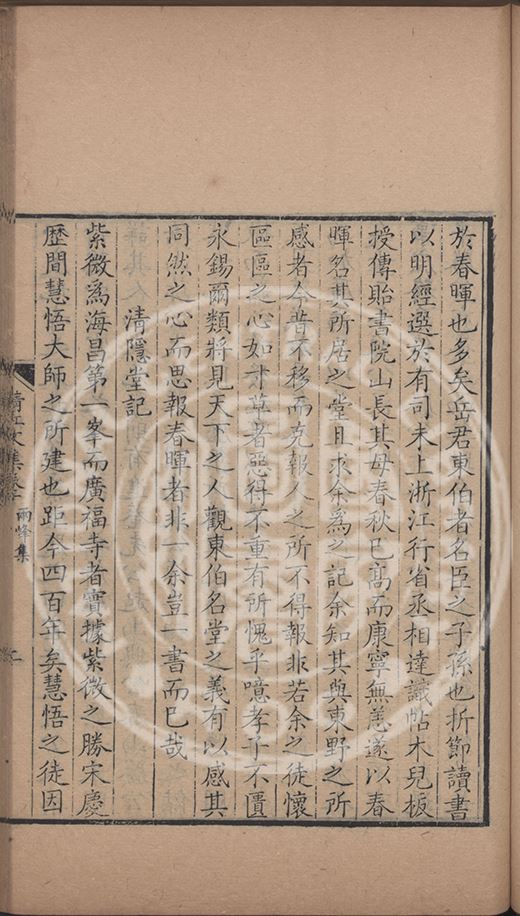 於春暉也多矣岳君東伯者名臣之子孫也折節讀書
以明經選於有司未上浙江行省丞相達識帖木兒板
授傳貽書院山長其母春秋已高而康寧無恙遂以春
暉名其所居之堂且求余爲之記余知其與東野之所
感者今昔不移而克報人之所不得報非若余之徒懷
區區之心如寸草者惡得不重有所愧乎噫孝子不匱
永錫爾類將見天下之人觀東伯名堂之義有以感其
同然之心而思報春暉者非一余豈一書而已哉
清隱堂記
紫微爲海昌第一峯而廣福寺者實據紫微之勝宋慶
歷間慧悟大師之所建也距今四百年矣慧悟之徒因
清江文集
兩峰集